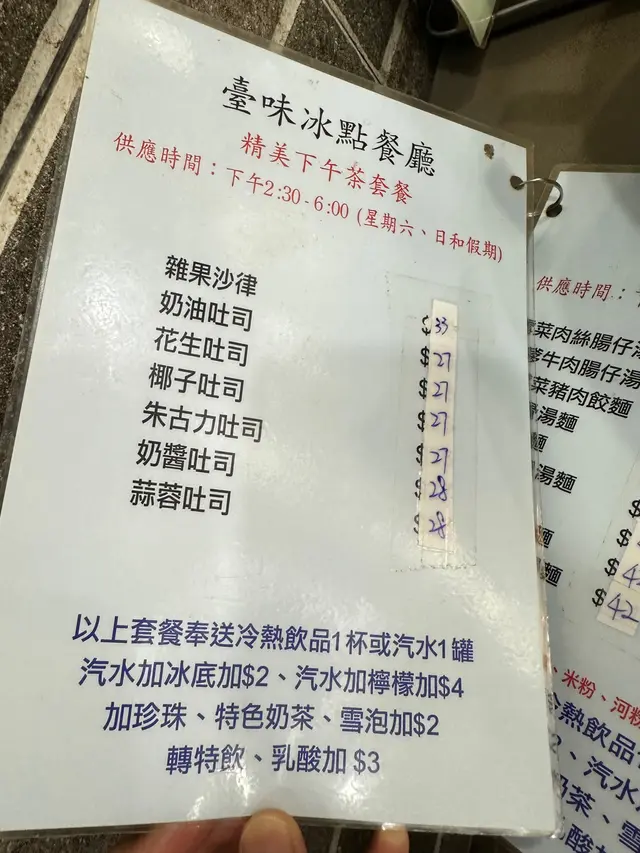 臺味冰點餐廳
精美下午茶套餐
供應時間：下午2:30-6:00 (星期六、日和假期)
雜果沙律 $33
奶油吐司 $27
花生吐司 $27
椰子吐司 $27
朱古力吐司 $27
奶醬吐司 $28
蒜蓉吐司 $28
以上套餐奉送冷熱飲品1杯或汽水1罐
汽水加冰底加$2、汽水加檸檬加$4
加珍珠、特色奶茶、雪泡加$2
轉特飲、乳酸加 $3
供應時間：
菜肉絲腸仔湯
牛肉腸仔湯
菜豬肉餃麵
湯麵
麵
湯麵
麵 $
麵 $4
$42
、米粉、河粉
熱飲品
2、汽水
奶茶、雪
酸加